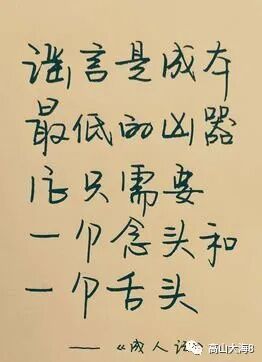 谣言是成本
最低的凶器
它只需要
一个念头和
一个舌头
——《成人
高山大海8